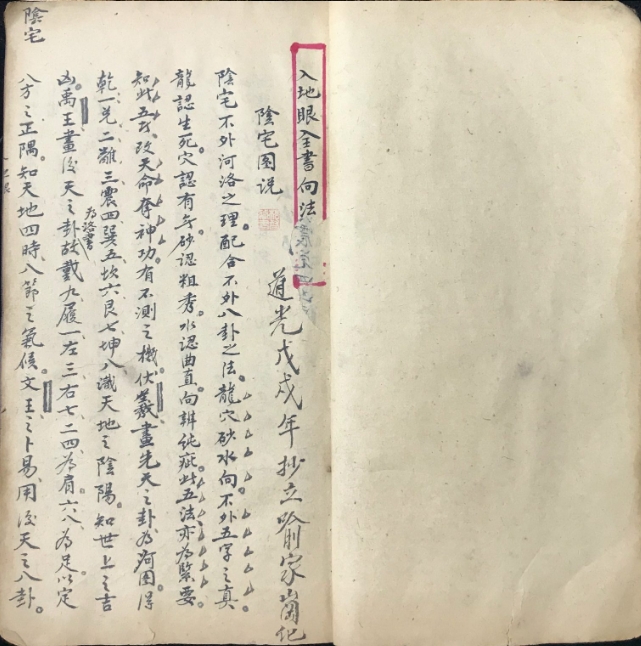 入地眼全書向法
道光戊戌年抄立喻家崗化
陰宅圖说
陰宅不外河洛之理。配合不外八卦之法。龍穴砂水向不外五字之真
龍認生死。穴認有無。砂認粗秀。水認曲直。向辨純疵。此五法亦為緊要
知此五者改天命奪神功。有不測之機。伏羲畫先天之卦為河图。得
乾一兌二離三震四巽五坎六艮七坤八識天地之陰陽。知世上之吉
凶。禹王畫後天之卦為洛書故戴九履一左三右七二四為肩。六八為足。以定
八方之正隅。知天地四時八節之氣候。文王之卜易用後天之八卦。
陰宅